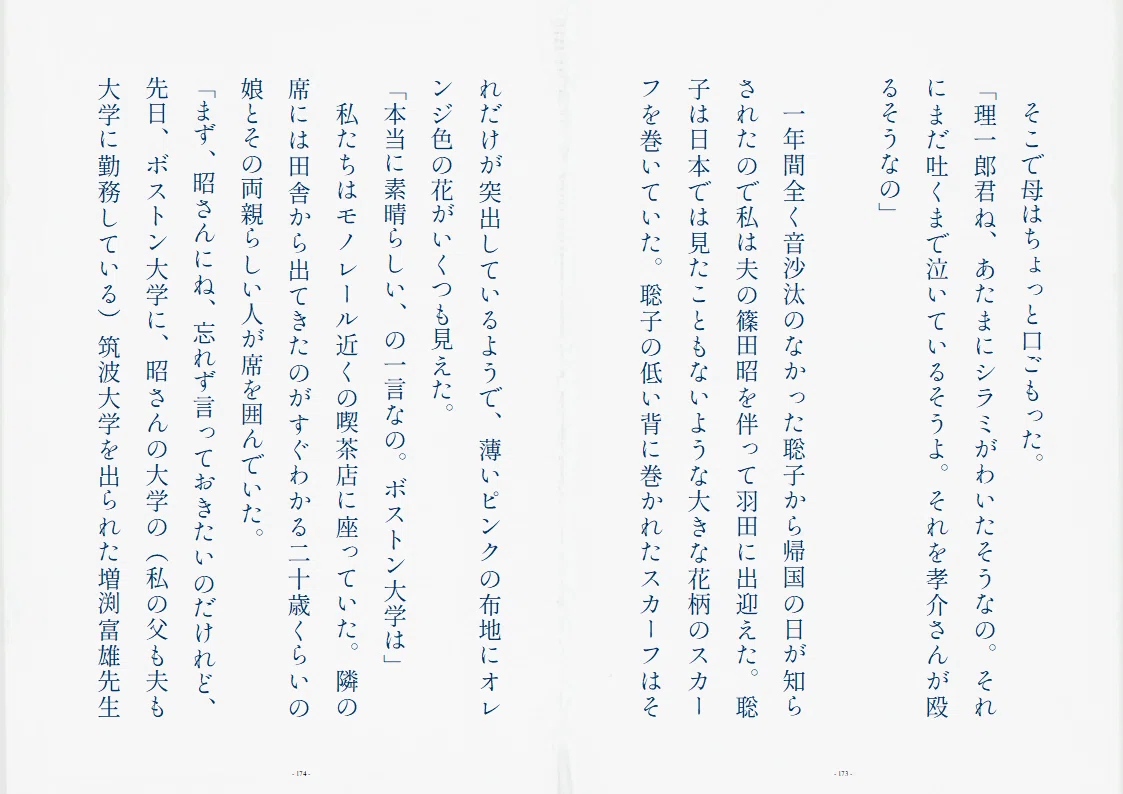 そこで母はちょっと口ごもった。
「理一郎君ね、あたまにシラミがわいたそうなの。それ
にまだ吐くまで泣いているそうよ。それを孝介さんが殴
るそうなの」
一年間全く音沙汰のなかった聡子から帰国の日が知ら
されたので私は夫の篠田昭を伴って羽田に出迎えた。聡
子は日本では見たこともないような大きな花柄のスカー
フを巻いていた。聡子の低い背に巻かれたスカーフはそ
- 173 -
れだけが突出しているようで、薄いピンクの布地にオレ
ンジ色の花がいくつも見えた。
「本当に素晴らしい、の一言なの。ボストン大学は」
私たちはモノレール近くの喫茶店に座っていた。隣の
席には田舎から出てきたのがすぐわかる二十歳くらいの
娘とその両親らしい人が席を囲んでいた。
「まず、昭さんにね、忘れず言っておきたいのだけれど、
先日、ボストン大学に、昭さんの大学の（私の父も夫も
大学に勤務している）筑波大学を出られた増渕富雄先生
- 174 -